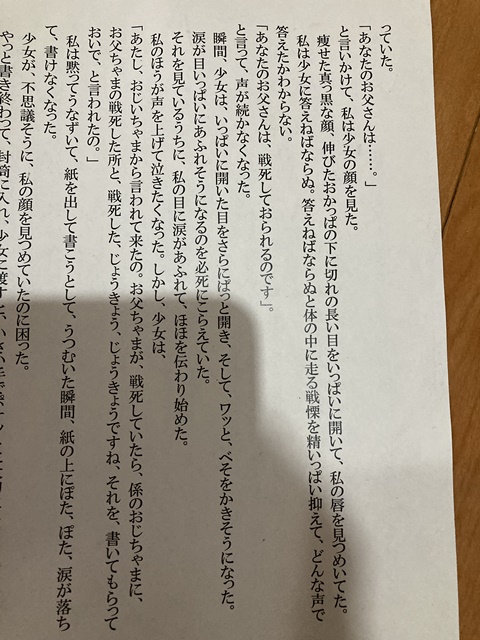 っていた。
「あなたのお父さんは……。」
と言いかけて、私は少女の顔を見た。
痩せた真っ黒な顔、伸びたおかっぱの下に切れの長い目をいっぱいに開いて、私の唇を見つめていた。
私は少女に答えねばならぬ。答えねばならぬと体の中に走る戦慄を精いっぱい抑えて、どんな声で
答えたかわからない。
「あなたのお父さんは、戦死しておられるのです」。
と言って、声が続かなくなった。
瞬間、少女は、いっぱいに開いた目をさらにぱっと開き、そして、ワッと、べそをかきそうになった。
涙が目いっぱいにあふれそうになるのを必死にこらえていた。
それを見ているうちに、私の目に涙があふれて、ほほを伝わり始めた。
私のほうが声を上げて泣きたくなった。しかし、少女は、
「あたし、おじいちゃまから言われて来たの。お父ちゃまが、戦死していたら、係のおじちゃまに、
お父ちゃまの戦死した所と、戦死した、じょうきょう、じょうきょうですね、それを、書いてもらって
おいで、と言われたの。」
私は黙ってうなずいて、紙を出して書こうとして、うつむいた瞬間、紙の上にぽた、ぽた、涙が落ち
て、書けなくなった。
少女が、不思議そうに、私の顔を見つめていたのに困った。
やっと書き終わって、封筒に入れ、少女に渡すと、